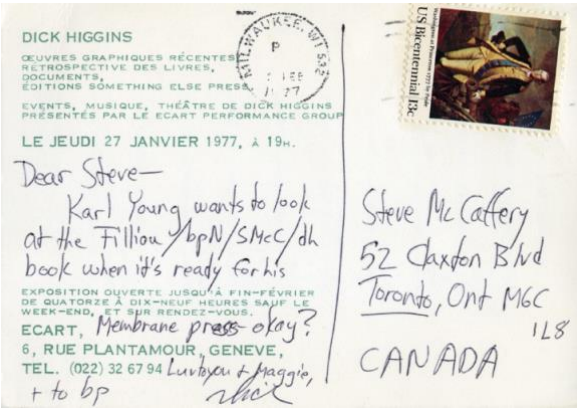 DICK HIGGINS
ŒUVRES GRAPHIQUES RÉCENTES
RÉTROSPECTIVE DES LIVRES,
DOCUMENTS,
ÉDITIONS SOMETHING ELSE PRESS
EVENTS, MUSIQUE, THÉÂTRE DE DICK HIGGINS
PRÉSENTÉS PAR LE ECART PERFORMANCE GROUP
LE JEUDI 27 JANVIER 1977, À 19H.
Dear Steve—
Karl Young wants to look
at the Filliou/bpN/SMcC/dh
book when it's ready for his
EXPOSITION OUVERTE JUSQU'À FIN-FÉVRIER
DE QUATORZE À DIX-NEUF HEURES SAUF LE
WEEK-END, ET SUR RENDEZ-VOUS.
ECART, Membrane press—okay?
6, RUE PLANTAMOUR, GENEVE,
TEL. (022) 32 67 94 Luvtoyou + Maggie,
+ to bp
Dick
MILWAUKEE, WI 532
P
FEB
Washington at Princeton 1777 by Peale
US Bicentennial 13c
Steve McCaffery
52 Claxton Blvd
Toronto, Ont M6C
1L8
CANADA